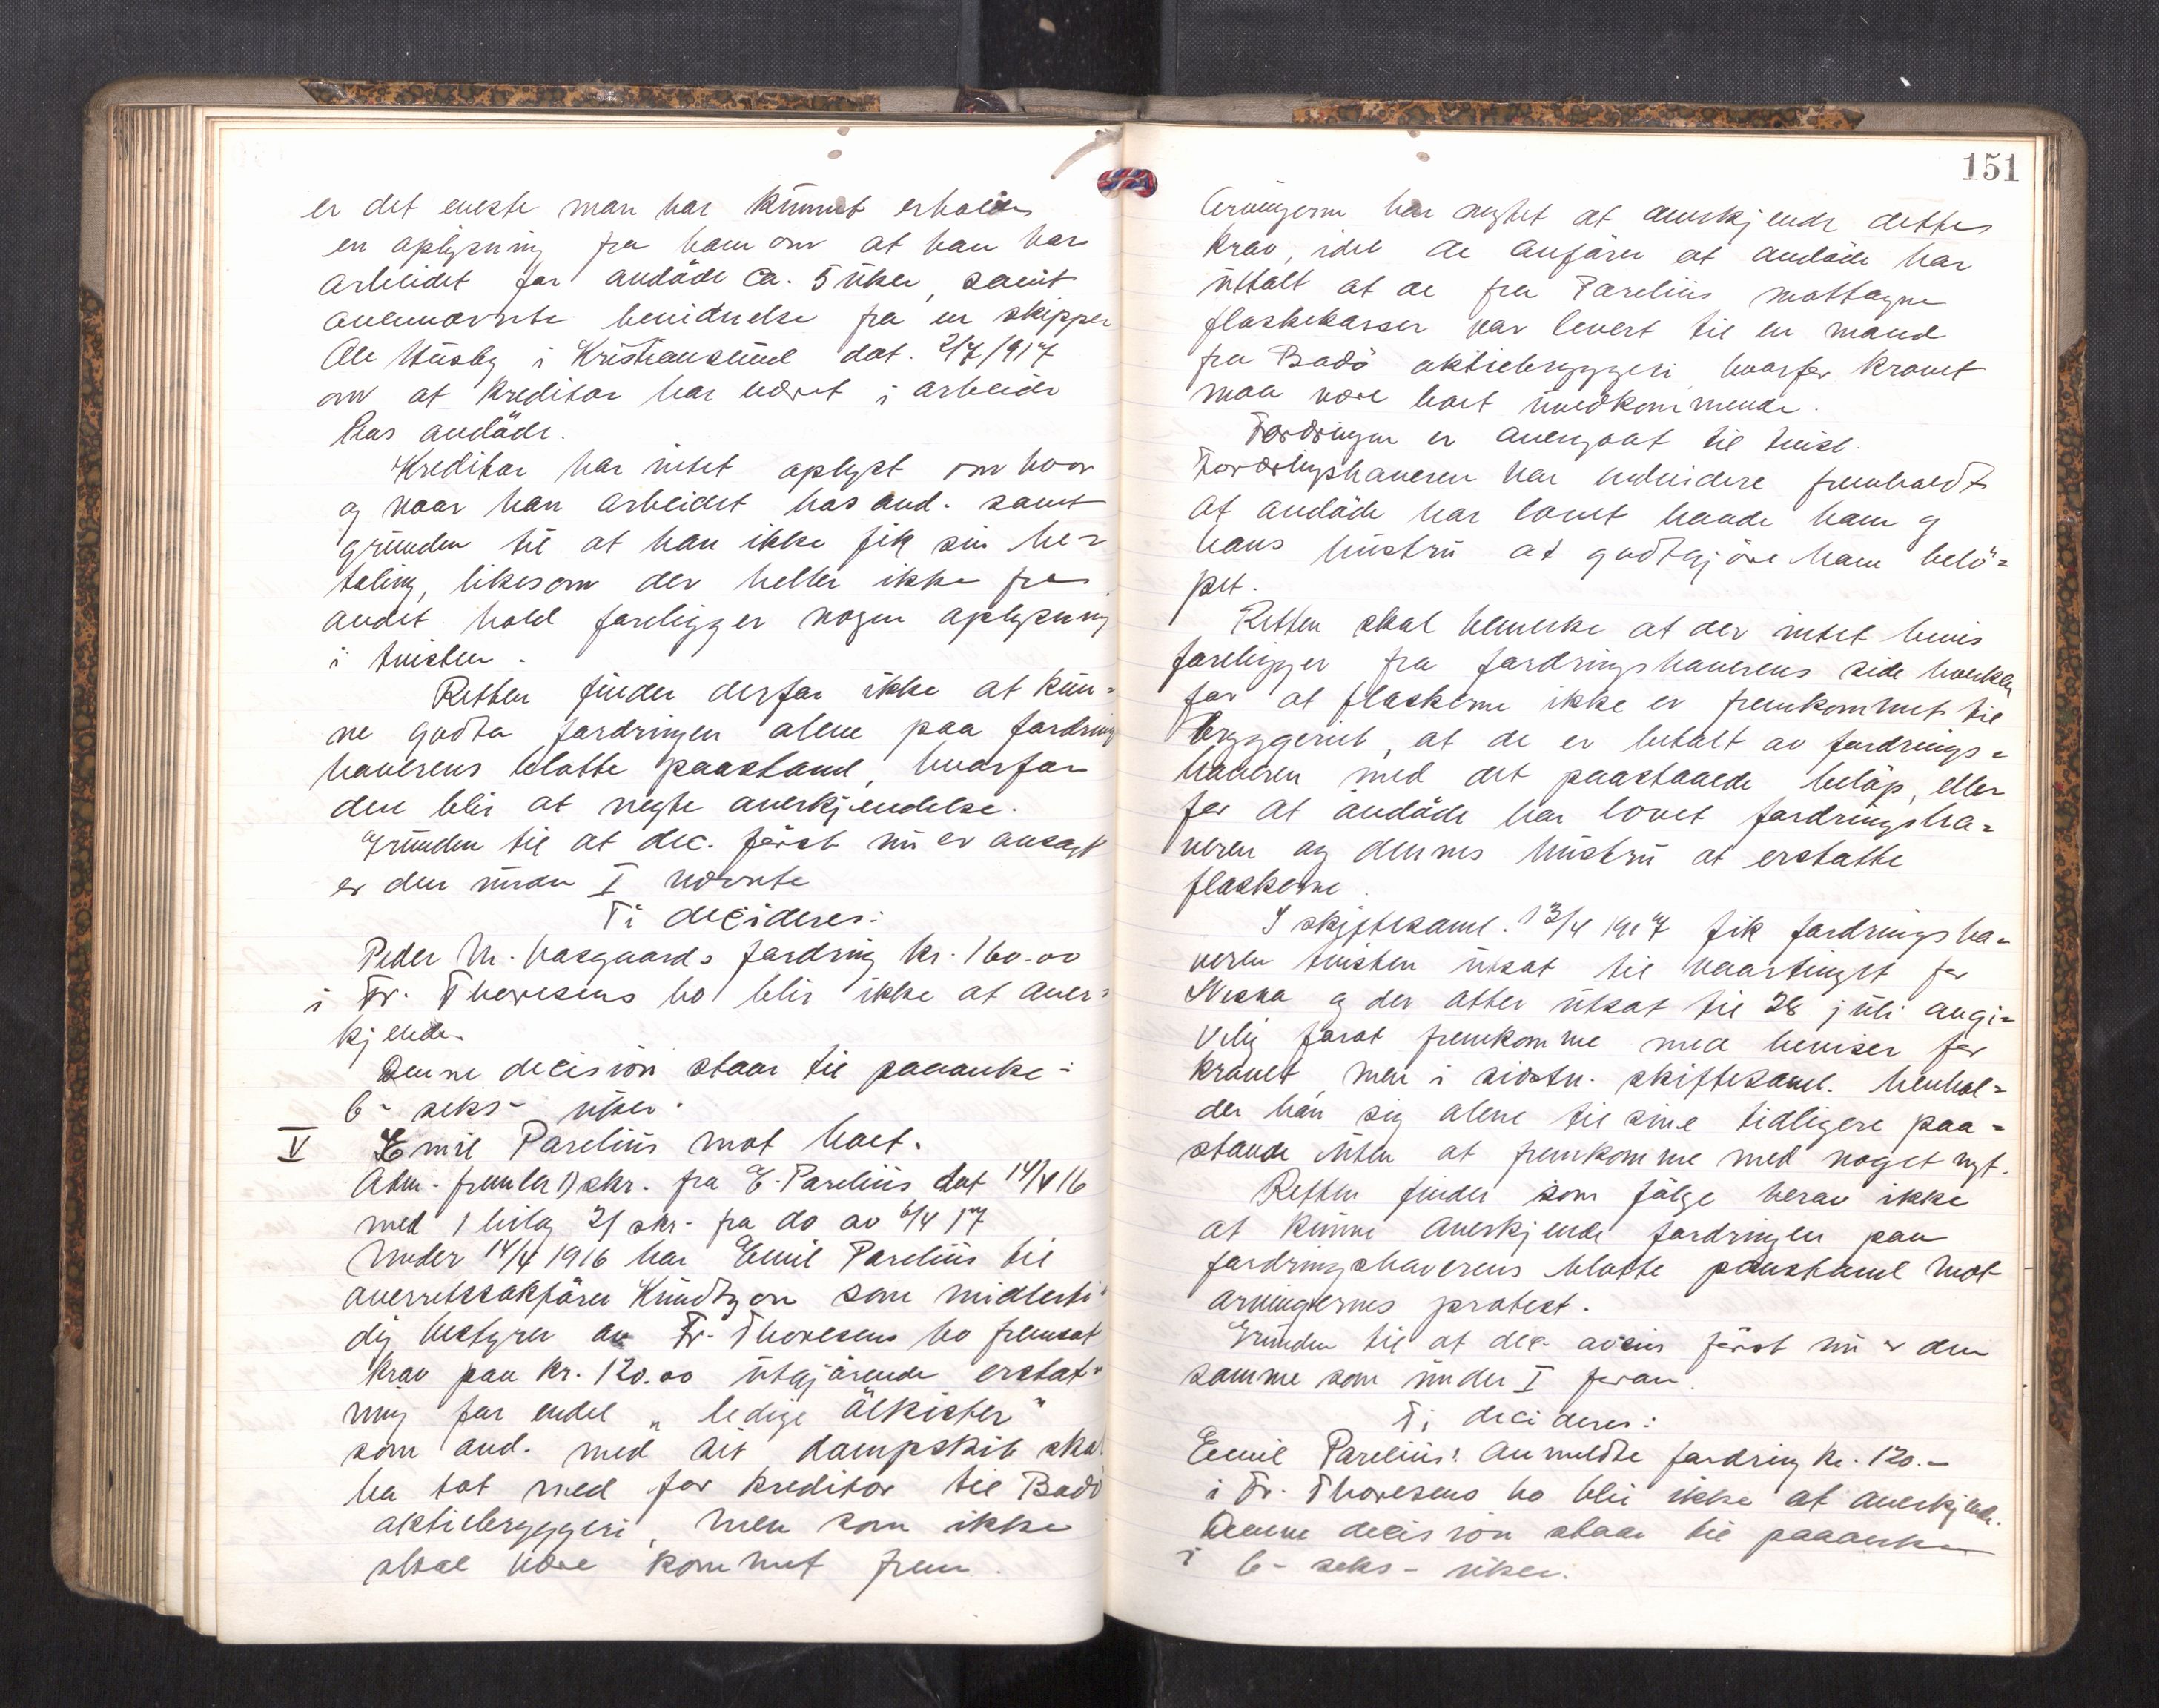 er det eneste man har kunnet erholdes
en oplysning fra ham om at han har
arbeidet for avdöde ca. 5 uker, samt
ovennævnte bevidnelse fra en skipper
Ole Husby i Kristiansund dat. 2/7 1917
om at kreditor har været i arbeide
hos avdöde.
Kreditor har intet oplyst om hvor
og naar han arbeidet hos avd. samt
grunden til at han ikke fik sin be=
taling, likesom der heller ikke fra
andet hold foreligger nogen oplysning
i tvisten.
Retten finder derfor ikke at kun=
ne godta fordringen alene paa fordring
haverens blotte paastand, hvorfor
den blir at negte anerkjendelse.
Grunden til at dec. först nu er avsagt
er den under I nævnte
Ti decideres:
Peder M. Hasgaards fordring kr. 160.00
i Fr. Thoresens bo blir ikke at aner=
kjende.
Denne decision staar til paaanke i
6 - seks - uker.
V Emil Parelius mot boet.
Adm. fremla 1) skr. fra E. Parelius dat 14/4 16
med 1 bilag 2) skr. fra do av 6/4 17
Under 14/4 1916 har Emil Parelius til
overretssakförer Knudtzon som midlerti=
dig bestyrer av Fr. Thoresens bo fremsat
krav paa kr. 120.00 utgjörende erstat=
ning for endel "ledige ölkister"
som avd. med sit dampskib skal
ha tat med for kreditor til Bodö
aktiebryggeri, men som ikke
skal være kommet frem.
151
Arvingerne har negtet at anerkjende dette
krav, idet de anförer at avdöde har
uttalt at de fra Parelius mottagne
flaskekasser var levert til en mand
fra Bodö aktiebryggeri hvorfor kravet
maa være boet uvedkommende.
Fordringen er overgaat til tvist.
Fordringshaveren har endvidere fremholdt
at avdöde har lovet baade ham og
hans hustru at godtgjöre ham belö=
pet.
Retten skal bemerke at der intet bevis
foreligger fra fordringshaverens side hverken
for at flaskerne ikke er fremkommet til
bryggeriet, at de er betalt av fordrings=
haveren med det paastaaede belöp, eller
for at avdöde har lovet fordringsha=
veren og dennes hustru at erstatte
flaskerne.
I skiftesaml. 13/4 1917 fik fordringsha=
veren tvisten utsat til vaartinget for
Nesna og der atter utsat til 28 juli angi=
velig forat fremkomme med beviser for
kravet, men i sidstn. skiftesaml. henhol=
der han sig alene til sine tidligere paa=
stande uten at fremkomme med noget nyt.
Retten finder som fölge herav ikke
at kunne anerkjende fordringen paa
fordringshaverens blotte paastand mot
arvingernes protest.
Grunden til at dec. avsies först nu er den
samme som under I foran.
Ti decideres:
Emil Parelius' anmeldte fordring kr. 120.-
i Fr. Thoresens bo blir ikke at anerkjende.
Denne decision staar til paaanke
i 6 - seks - uker.